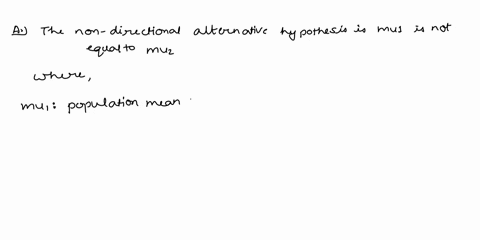 A.) The non-directional alternative hypothesis is mu1 is not
equal to mu2
where,
mu1: population mean